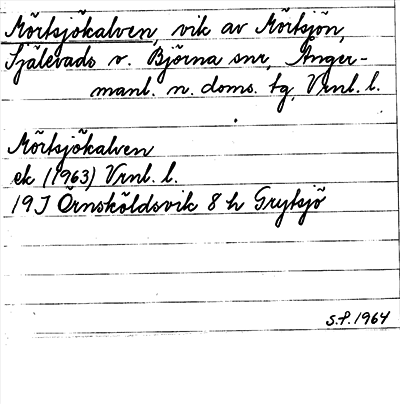 Mörtsjökalven, vik av Mörtsjön,
Själevads v. Björna snr, Ånger-
manl. n. doms. tg, Vrnl. l.
Mörtsjökalven
ek (1963) Vrnl. l.
19J Örnsköldsvik 8 h Grytsjö
S.P. 1964